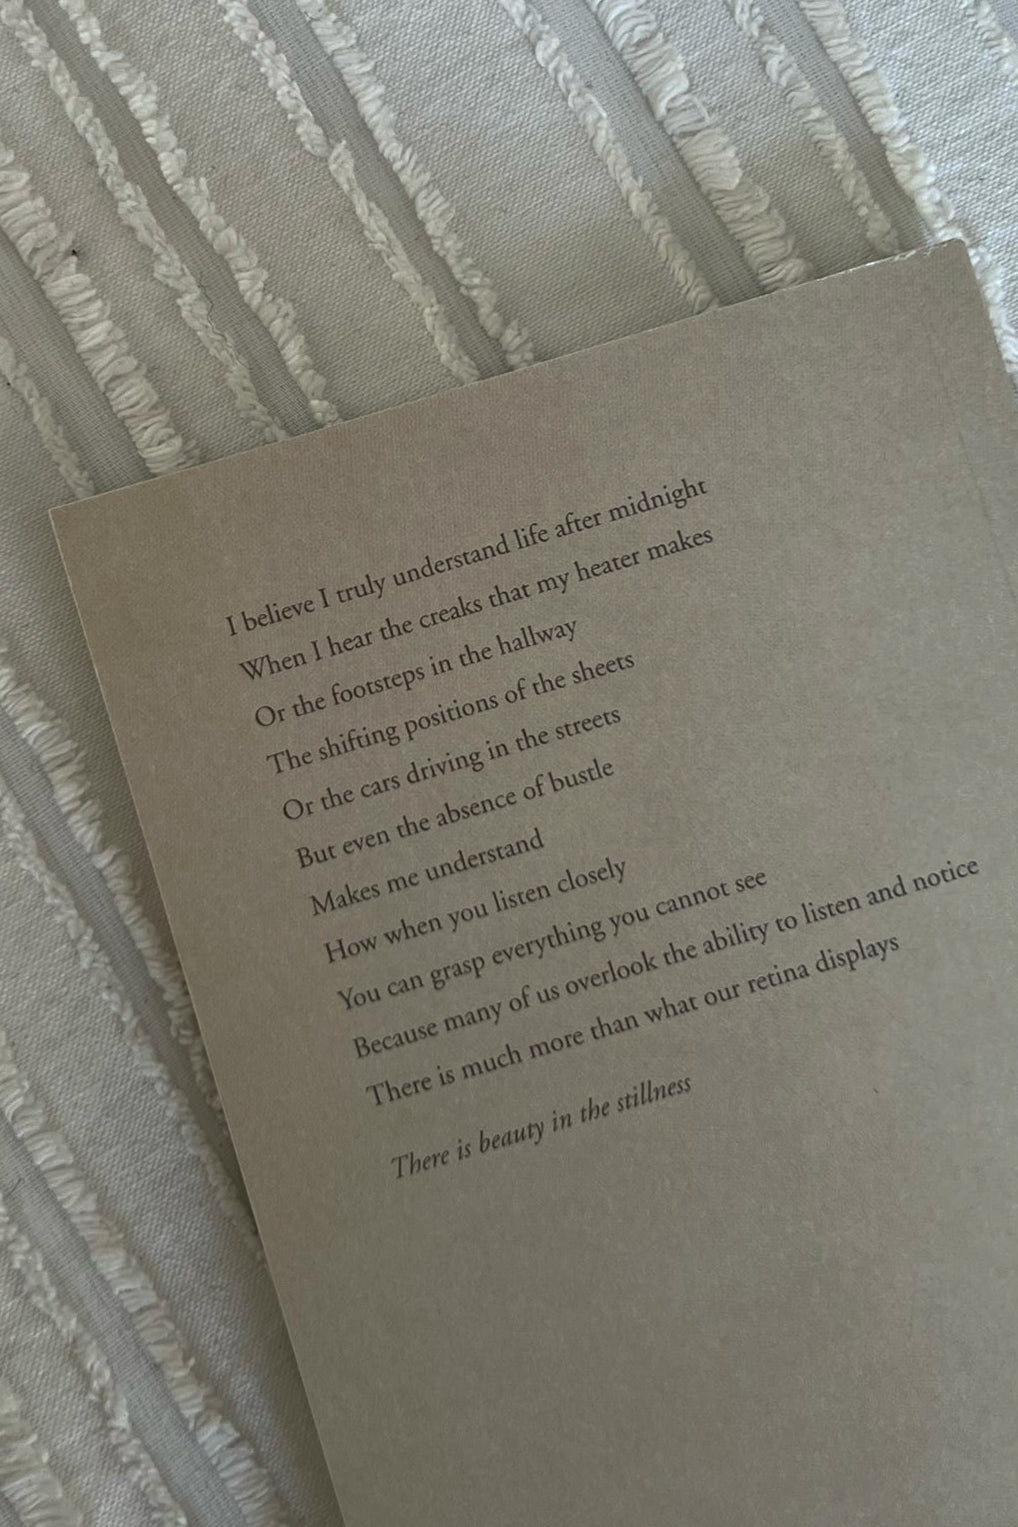 I believe I truly understand life after midnight
When I hear the creaks that my heater makes
Or the footsteps in the hallway
The shifting positions of the sheets
Or the cars driving in the streets
But even the absence of bustle
Makes me understand
How when you listen closely
You can grasp everything you cannot see
Because many of us overlook the ability to listen and notice
There is much more than what our retina displays
There is beauty in the stillness